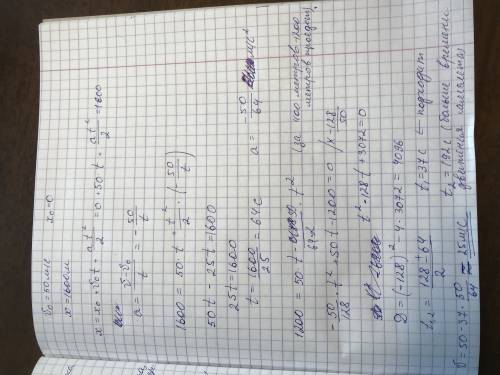 v₀ = 50 м/с   x₀ = 0
x = 1600 м
x = x₀ + v₀t + at²/2 = 0 + 50t + at²/2 = 1600
a = (v - v₀)/t = -50/t
1600 = 50 · t + t²/2 · (-50/t)
50t - 25t = 1600
25t = 1600
t = 1600/25 = 64 с   a = -50/64 м/с²
1200 = 50t - 50/(64·2) · t²   (за 400 метров - 1200 метров пройдет)
-50/128 t² + 50t - 1200 = 0 /× -128/50
t² - 128t + 3072 = 0
D = (-128)² - 4 · 3072 = 4096
t₁,₂ = (128 ± 64)/2   t₁ = 37 с ← подходит
t₂ = 192 с (больше времени движения самолета)
v = 50 - 37 · 50/64 ≈ 25 м/с